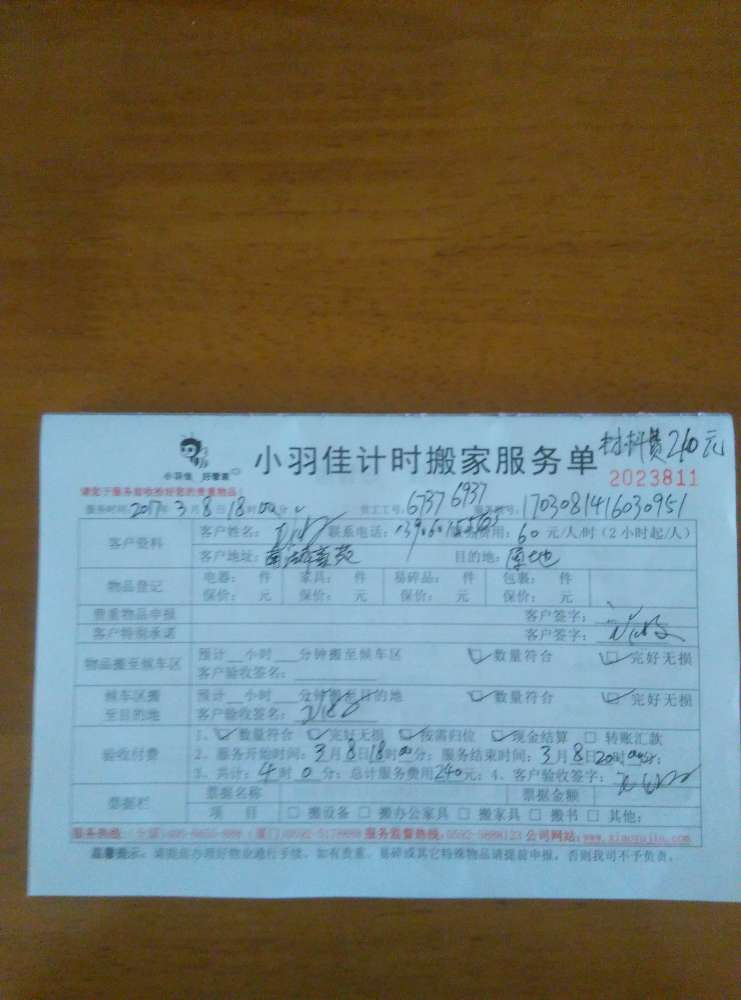 材料费240元
小羽佳计时搬家服务单
小羽佳 好管家
2023811
请您于服务前收拾好您的贵重物品!
服务时间:2017年3月8日18时00分 员工工号:6737 6937 服务编号:1703081416030951
客户资料 客户姓名: 联系电话: 服务费用:60元/人/时(2小时起/人)
客户地址: 目的地:原地
物品登记 电器: 件 家具: 件 易碎品: 件 包裹: 件
保价: 元 保价: 元 保价: 元 保价: 元
贵重物品申报 客户签字:
客户特别承诺 客户签字:
物品搬至候车区 预计__小时__分钟搬至候车区 数量符合 完好无损
客户验收签名:
候车区搬至目的地 预计__小时__分钟搬至目的地 数量符合 完好无损
客户验收签名:
验收付费 1、数量符合 完好无损 按需归位 现金结算 转账汇款
2、服务开始时间:3月8日18时00分;服务结束时间:3月8日20时00分;
3、共计:4时0分;总计服务费用240元;4、客户验收签字:
票据栏 票据名称 票据金额
项 目 搬设备 搬办公家具 搬家具 搬书 其他:
服务热线: 服务监督热线: 公司网站:www.xiaoyujia.com
温馨提示:请提前办理好物业通行手续,如有贵重、易碎或其它特殊物品请提前申报,否则我司不予负责。